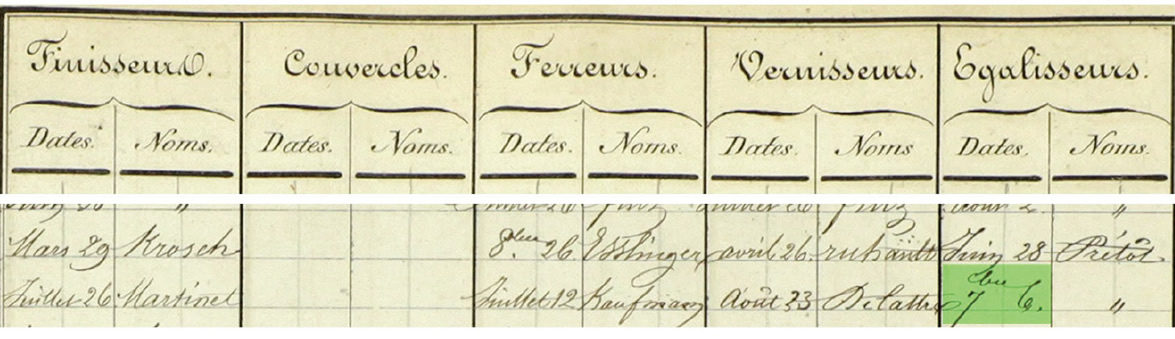 Finisseurs. Couvercles. Ferreurs. Vernisseurs. Egalisseurs.
Dates. Noms. Dates. Noms. Dates. Noms. Dates. Noms Dates. Noms.
" août 2. "
Mars 29 Krosch 8bre. 26 Esslinger avril 26. Juin 28 Prétôt.
Juillet 26. Martinet Juillet 12 Kaufmann Août 23 Delattre 7bre 6. "